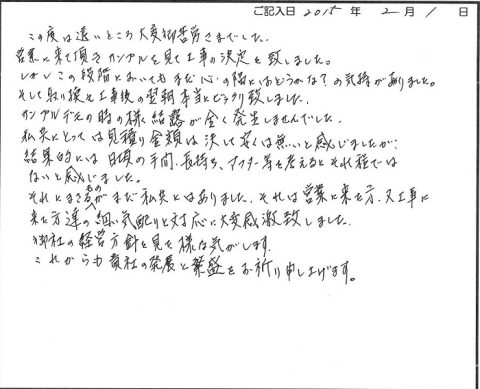 ご記入日 2015 年 2 月 1 日
この度は遠いところ大変御苦労さまでした。
営業に来て頂きサンプルを見て工事の決定を致しました。
しかしこの段階においてもまだ心の隅にはどうかな？の気持がありました。
そして取り換え工事後の翌朝本当にビックリ致しました。
サンプルデモの時の様結露が全く発生しませんでした。
私共にとっては見積り金額は決して安くは無いと感じましたが、
結果的には日頃の手間、長持ち、アフター等を考えるとそれ程では
ないと感じました。
それにまさるものがまだ私共にはありました。それは営業に来た方、又工事に
来た方達の細い気配りと対応に大変感激致しました。
御社の経営方針を見た様な気がします。
これからも貴社の発展と繁盛をお祈り申し上げます。